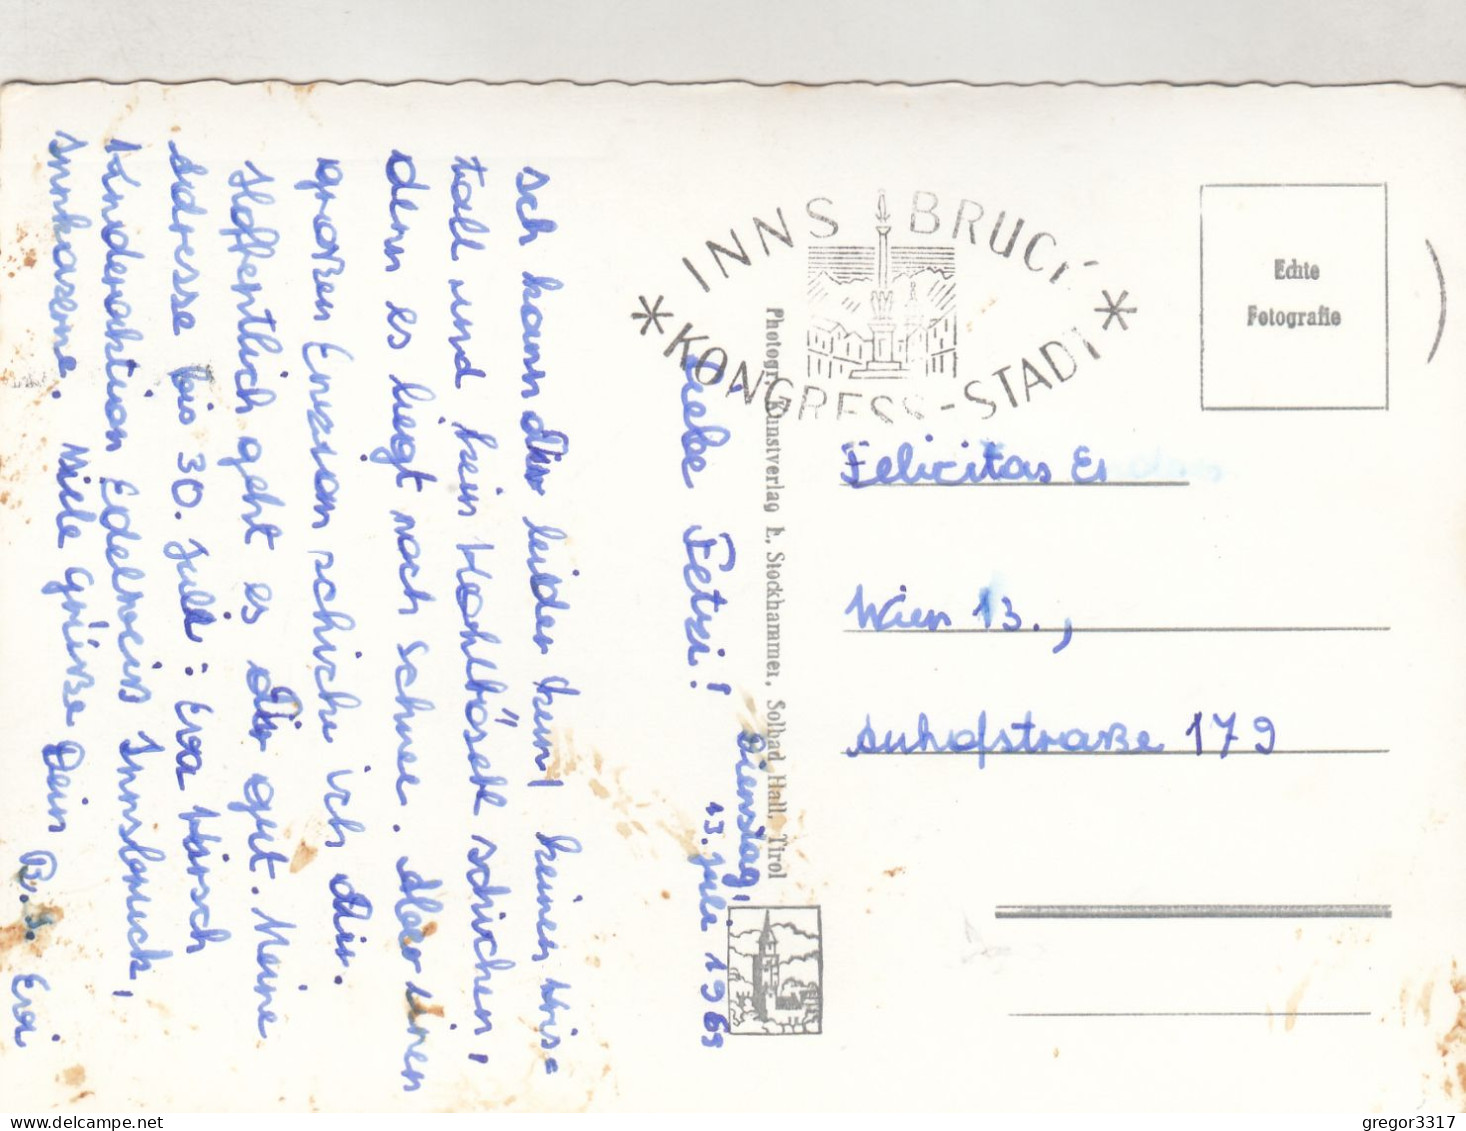 Dienstag,
13. Juli 1965
Liebe Fetzi!
Ich kann Dir leider kein, keinen Kris=
tall und kein Kohlrösel schicken,
denn es liegt noch Schnee. Aber einen
großen Enzian schicke ich Dir.
Hoffentlich geht es Dir gut. Meine
Adresse bis 30. Juli: Eva Hirsch
Kinderaktion Edelweiß Innsbruck,
Innkaserne. Viele Grüße Dein B. J. Eva
INNSBRUCK
KONGRESS-STADT
Echte
Fotografie
Photogr. Kunstverlag L. Stockhammer, Solbad Hall, Tirol
Felicitas
Wien 13.,
Auhofstraße 179
gregor3317